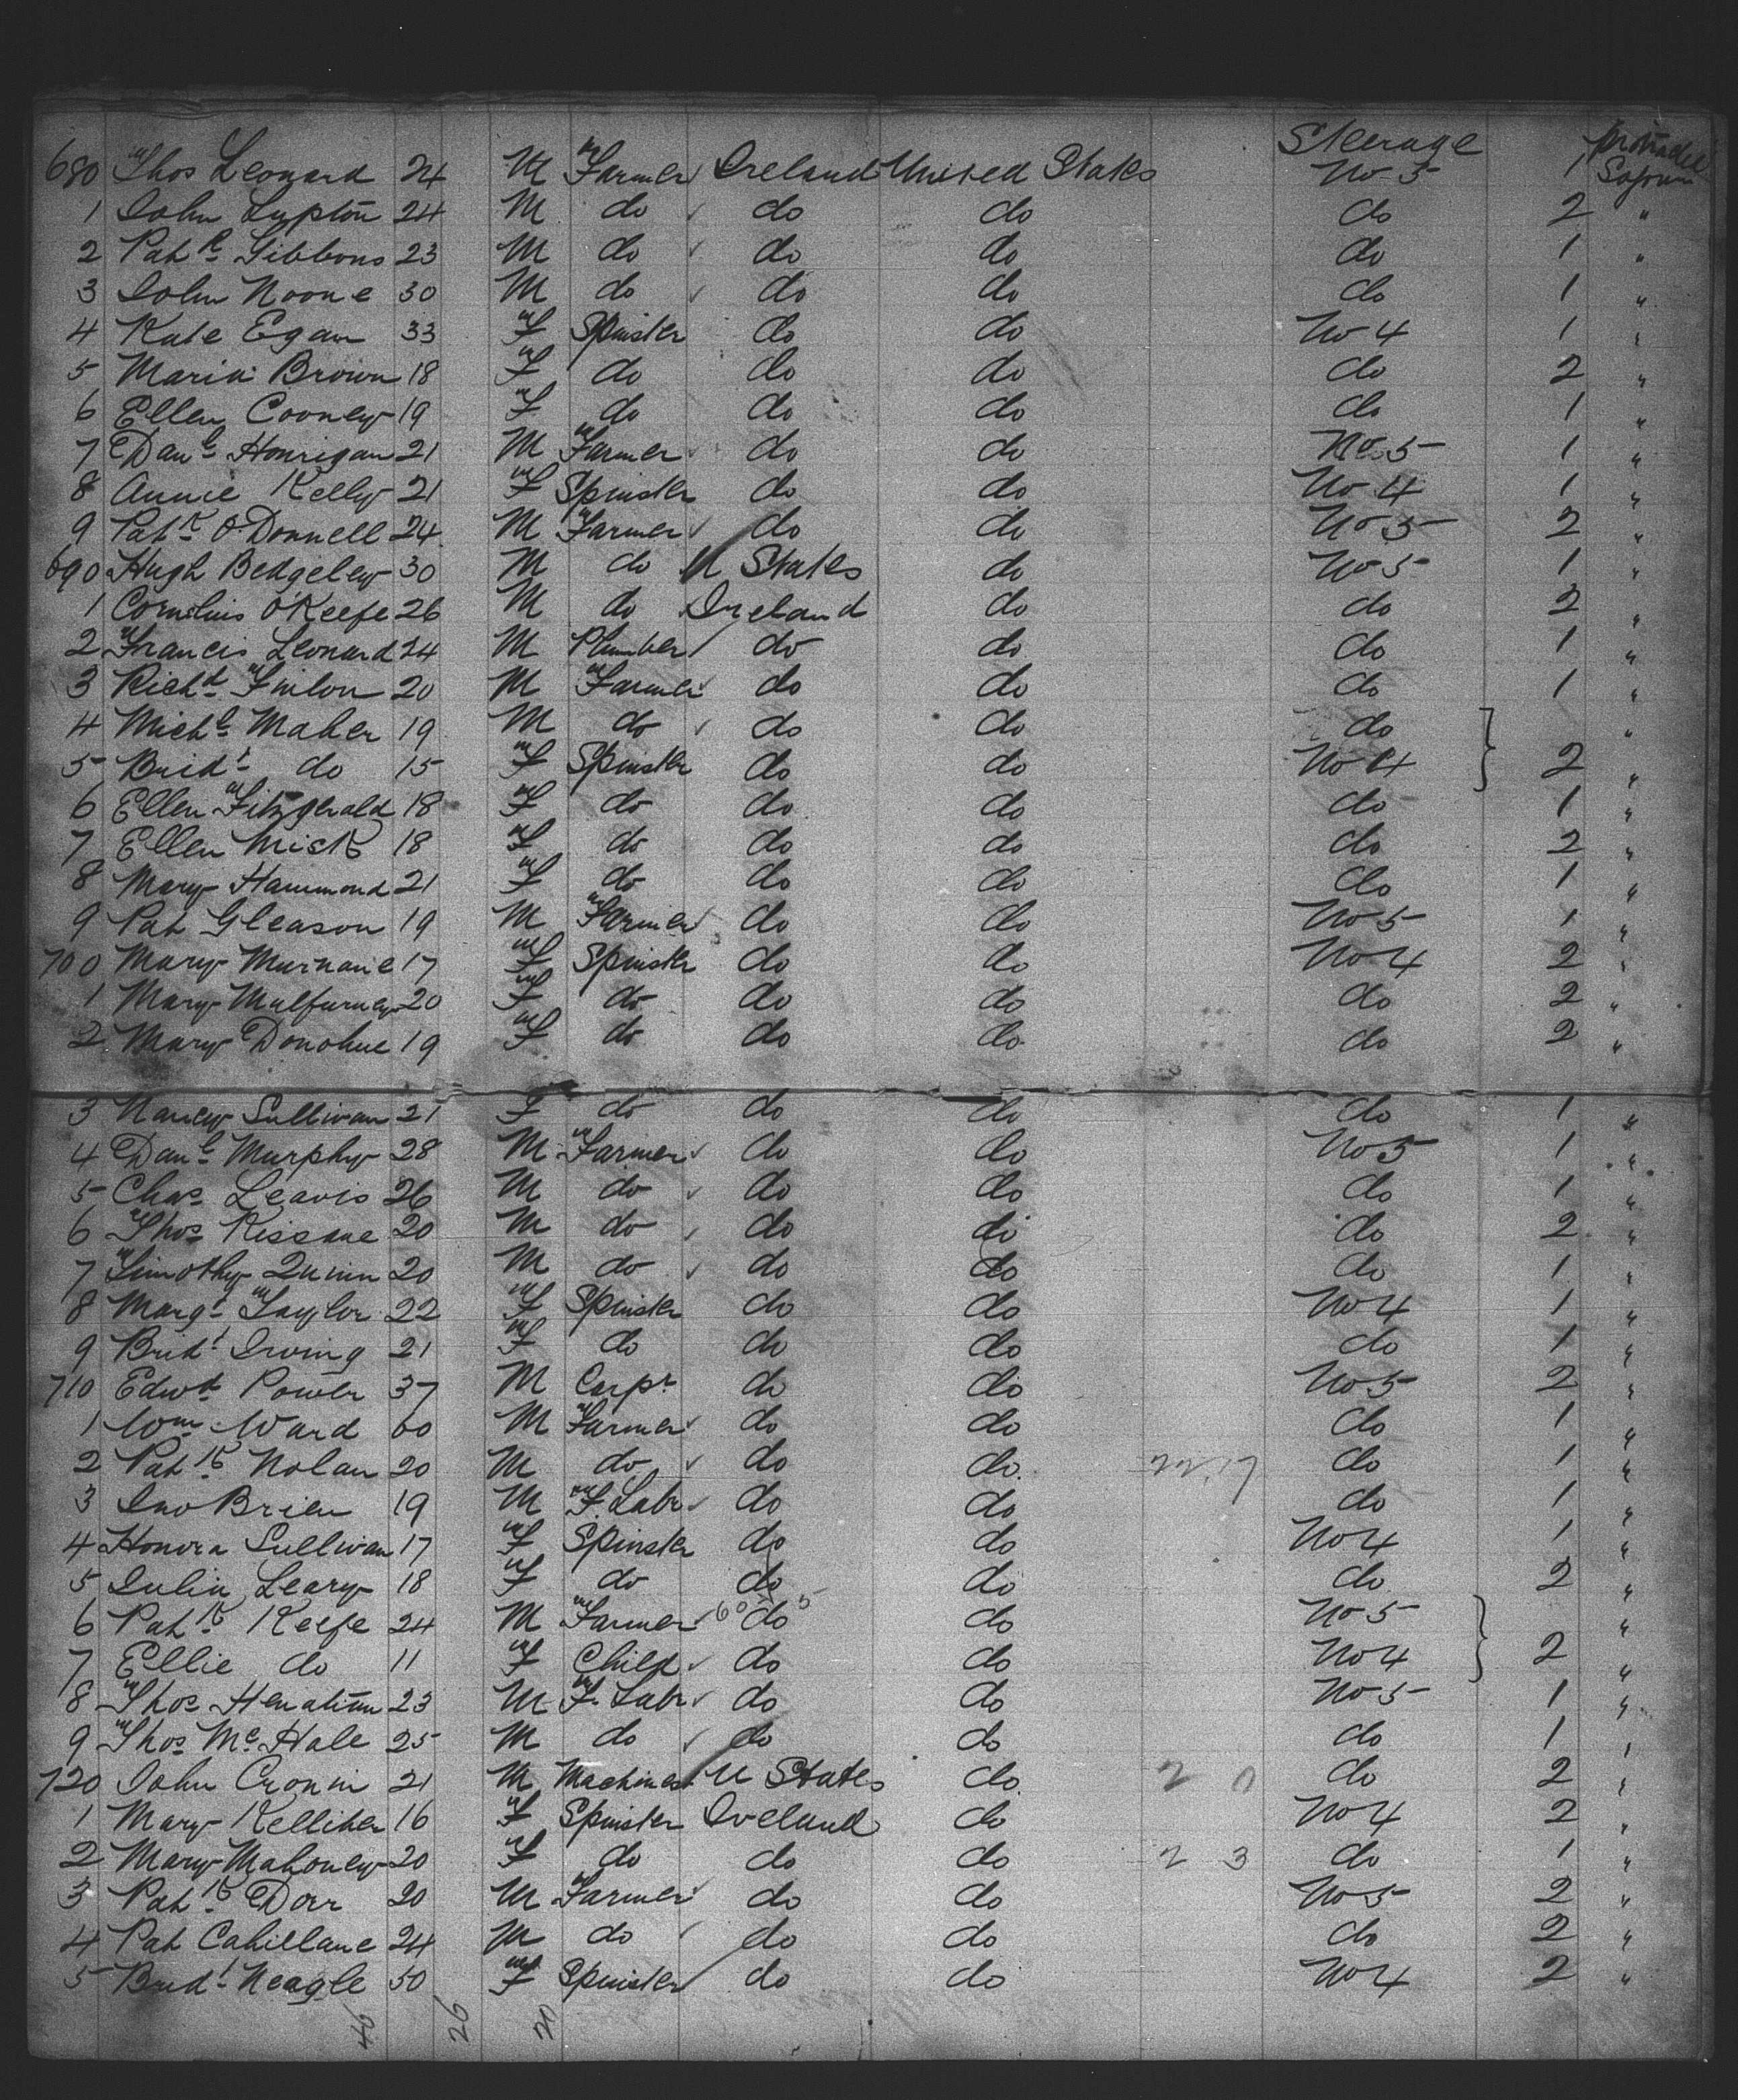 Steerage protracted
680 Thos Leonard 24 M Farmer Ireland United States No 5 1 Sojourn
1 John Lypton 24 M do do do do 2 "
2 Patk Gibbons 23 M do do do do 1 "
3 John Noone 30 M do do do do 1 "
4 Kate Egan 33 F Spinster do do No 4 1 "
5 Maria Brown 18 F do do do do 2 "
6 Ellen Cooney 19 F do do do do 1 "
7 Danl Honrigan 21 M Farmer do do No 5 1 "
8 Annie Kelly 21 F Spinster do do No 4 1 "
9 Patk O'Donnell 24 M Farmer do do No 5 2 "
690 Hugh Bedgeley 30 M do U States do No 5 1 "
1 Cornelius O'Keefe 26 M do Ireland do do 2 "
2 Francis Leonard 24 M Plumber do do do 1 "
3 Richd Finlon 20 M Farmer do do do 1 "
4 Michl Maher 19 M do do do do "
5 Bridt do 15 F Spinster do do No 4 2 "
6 Ellen Fitzgerald 18 F do do do do 1 "
7 Ellen Mick 18 F do do do do 2 "
8 Mary Hammond 21 F do do do do 1 "
9 Pat Gleason 19 M Farmer do do No 5 1 "
700 Mary Murnane 17 F Spinster do do No 4 2 "
1 Mary Mulfurney 20 F do do do do 2 "
2 Mary Donohue 19 F do do do do 2 "
3 Nancy Sullivan 21 F do do do do 1 "
4 Danl Murphy 28 M Farmer do do No 5 1 "
5 Chas Leavis 26 M do do do do 1 "
6 Thos Kissane 20 M do do do do 2 "
7 Timothy Quinn 20 M do do do do 1 "
8 Margt Taylor 22 F Spinster do do No 4 1 "
9 Bridt Irving 21 F do do do do 1 "
710 Edwd Power 37 M Carpr do do No 5 2 "
1 Wm Ward 60 M Farmer do do do 1 "
2 Patk Nolan 20 M do do do do 1 "
3 Jno Brien 19 M F. Labr do do do 1 "
4 Honora Sullivan 17 F Spinster do do No 4 1 "
5 Julia Leary 18 F do do do do 2 "
6 Patk Keefe 24 M Farmer do do No 5 "
7 Ellie do 11 F Child do do No 4 2 "
8 Thos Henatian 23 M F. Labr do do No 5 1 "
9 Thos McHale 25 M do do do do 1 "
720 John Cronin 21 M Machinest U States do 2 0 do 2 "
1 Mary Kelliher 16 F Spinster Ireland do No 4 2 "
2 Mary Mahoney 20 F do do do 2 3 do 1 "
3 Patk Dorr 20 M Farmer do do No 5 2 "
4 Pat Cahillane 24 M do do do do 2 "
5 Bridt Neagle 50 F Spinster do do No 4 2 "
46 26 20